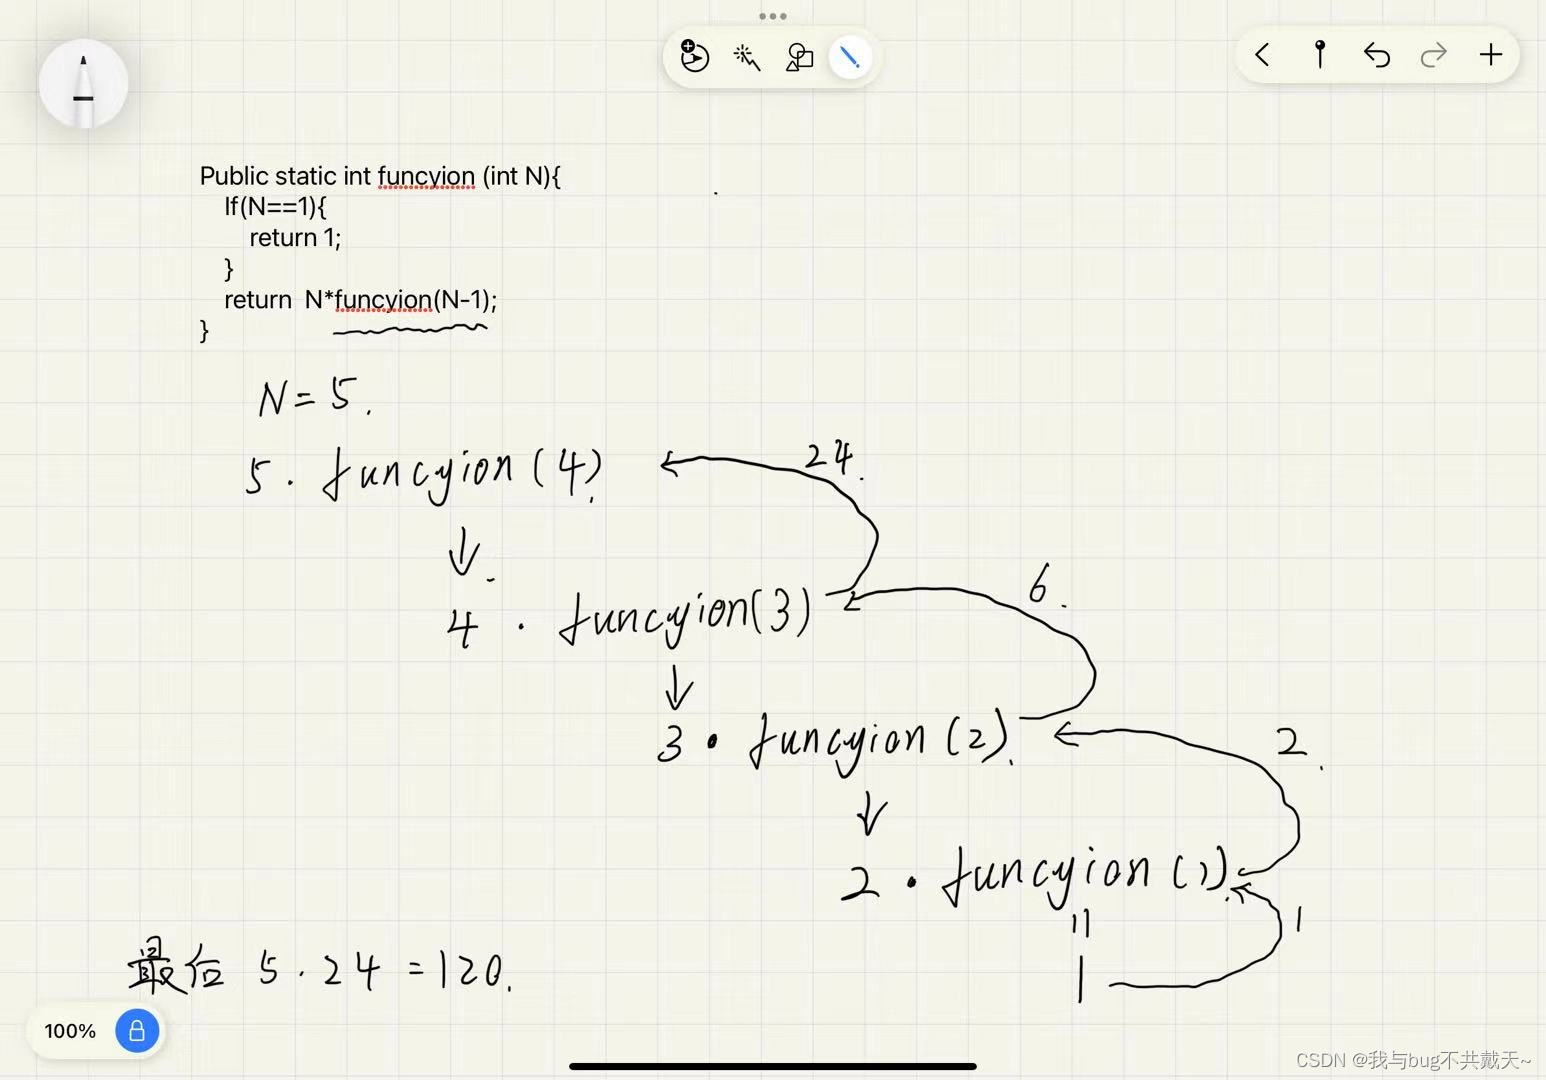 Public static int funcyion (int N){
If(N==1){
return 1;
}
return N*funcyion(N-1);
}
N = 5.
5 . funcyion (4)
24.
↓
4 . funcyion(3)
6.
↓
3 . funcyion (2)
2.
↓
2 . funcyion (1)
11
1
1
最后 5 . 24 = 120.
100%
CSDN @我与bug不共戴天~